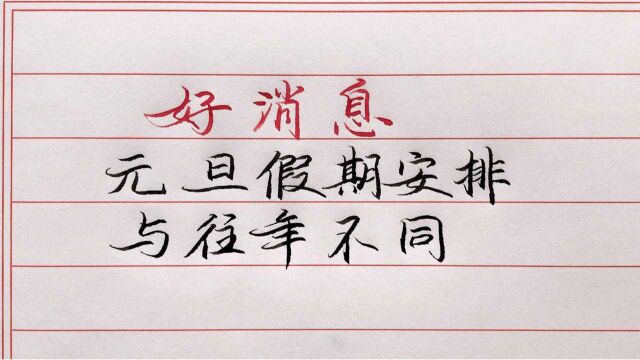 好消息
元旦假期安排
与往年不同